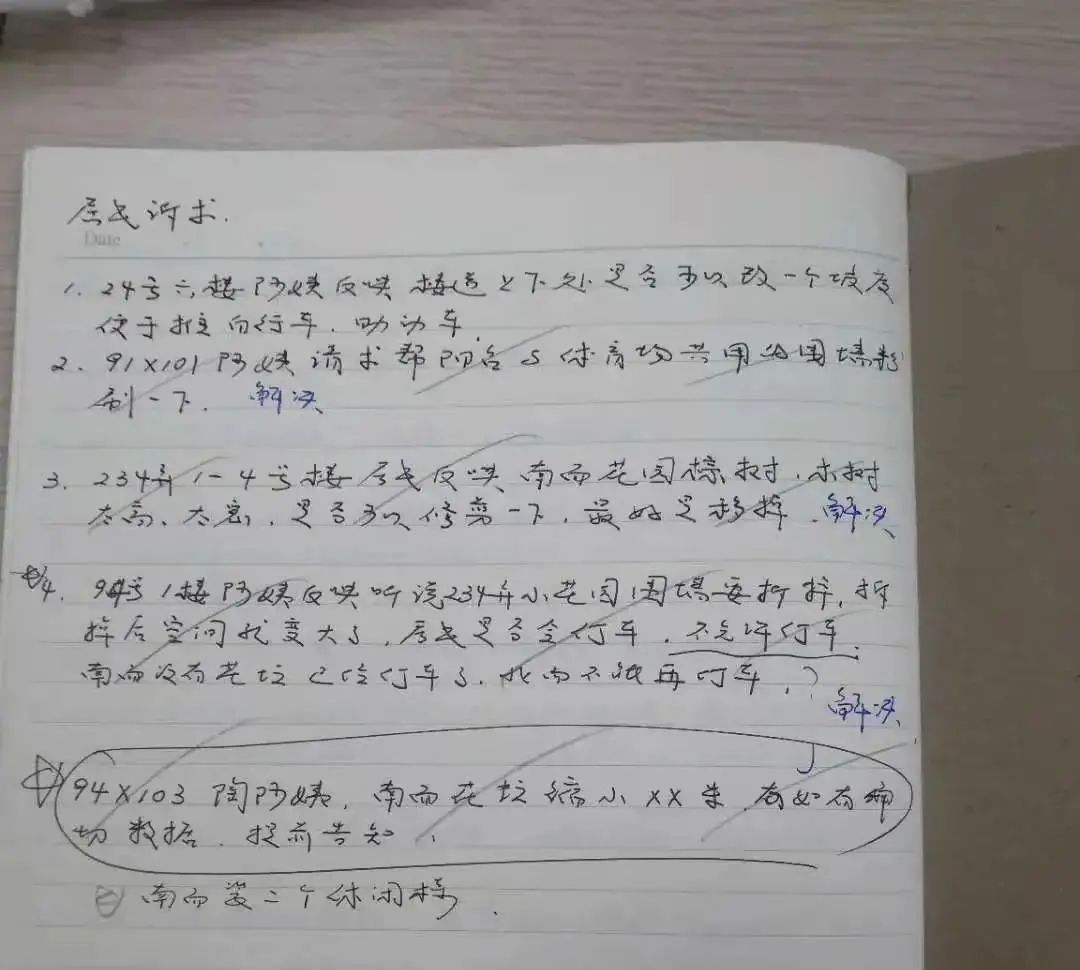 居民诉求.
Date
1. 24号六楼阿姨反映 楼道上下处是否可以改一个坡度
便于推自行车、助动车
2. 91×101阿姨请求帮阳台与体育场共用的围墙粉
刷一下. 解决
3. 234弄1-4号楼居民反映 南面花园棕树、木树
太高、太密,是否可以修剪一下,最好是移掉. 解决
4. 94号1楼阿姨反映听说234弄小花园围墙要拆掉,拆
掉后空间就变大了,居民是否会停车,不允许停车.
南面没有花坛已经停车了,北面不能再停车,?
解决
94×103 陶阿姨,南面花坛缩小××米,如有确
切数据,提前告知、
② 南面装二个休闲椅.